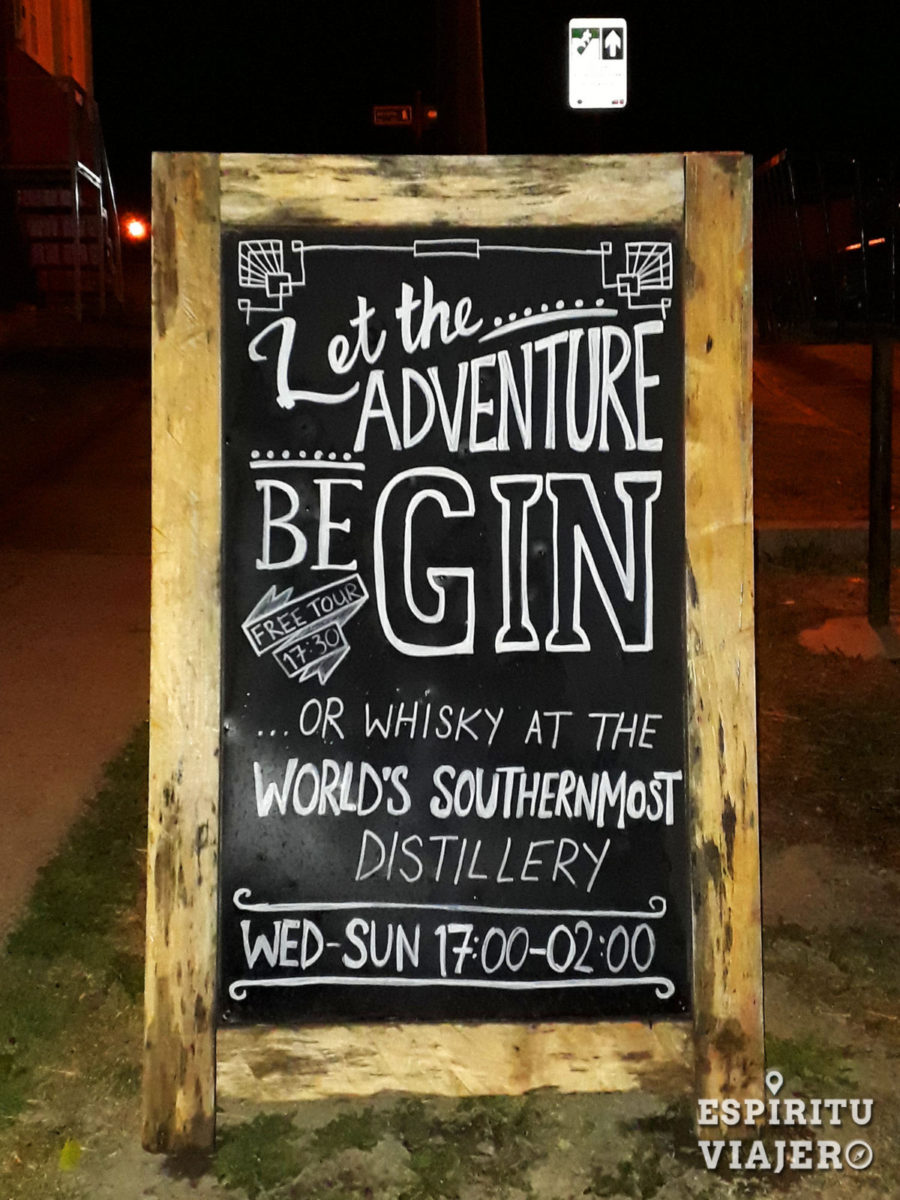 Let the
ADVENTURE
BEGIN
FREE TOUR
17:30
...OR WHISKY AT THE
WORLD'S SOUTHERNMOST
DISTILLERY
WED-SUN 17:00-02:00
ESPÍRITU
VIAJERO